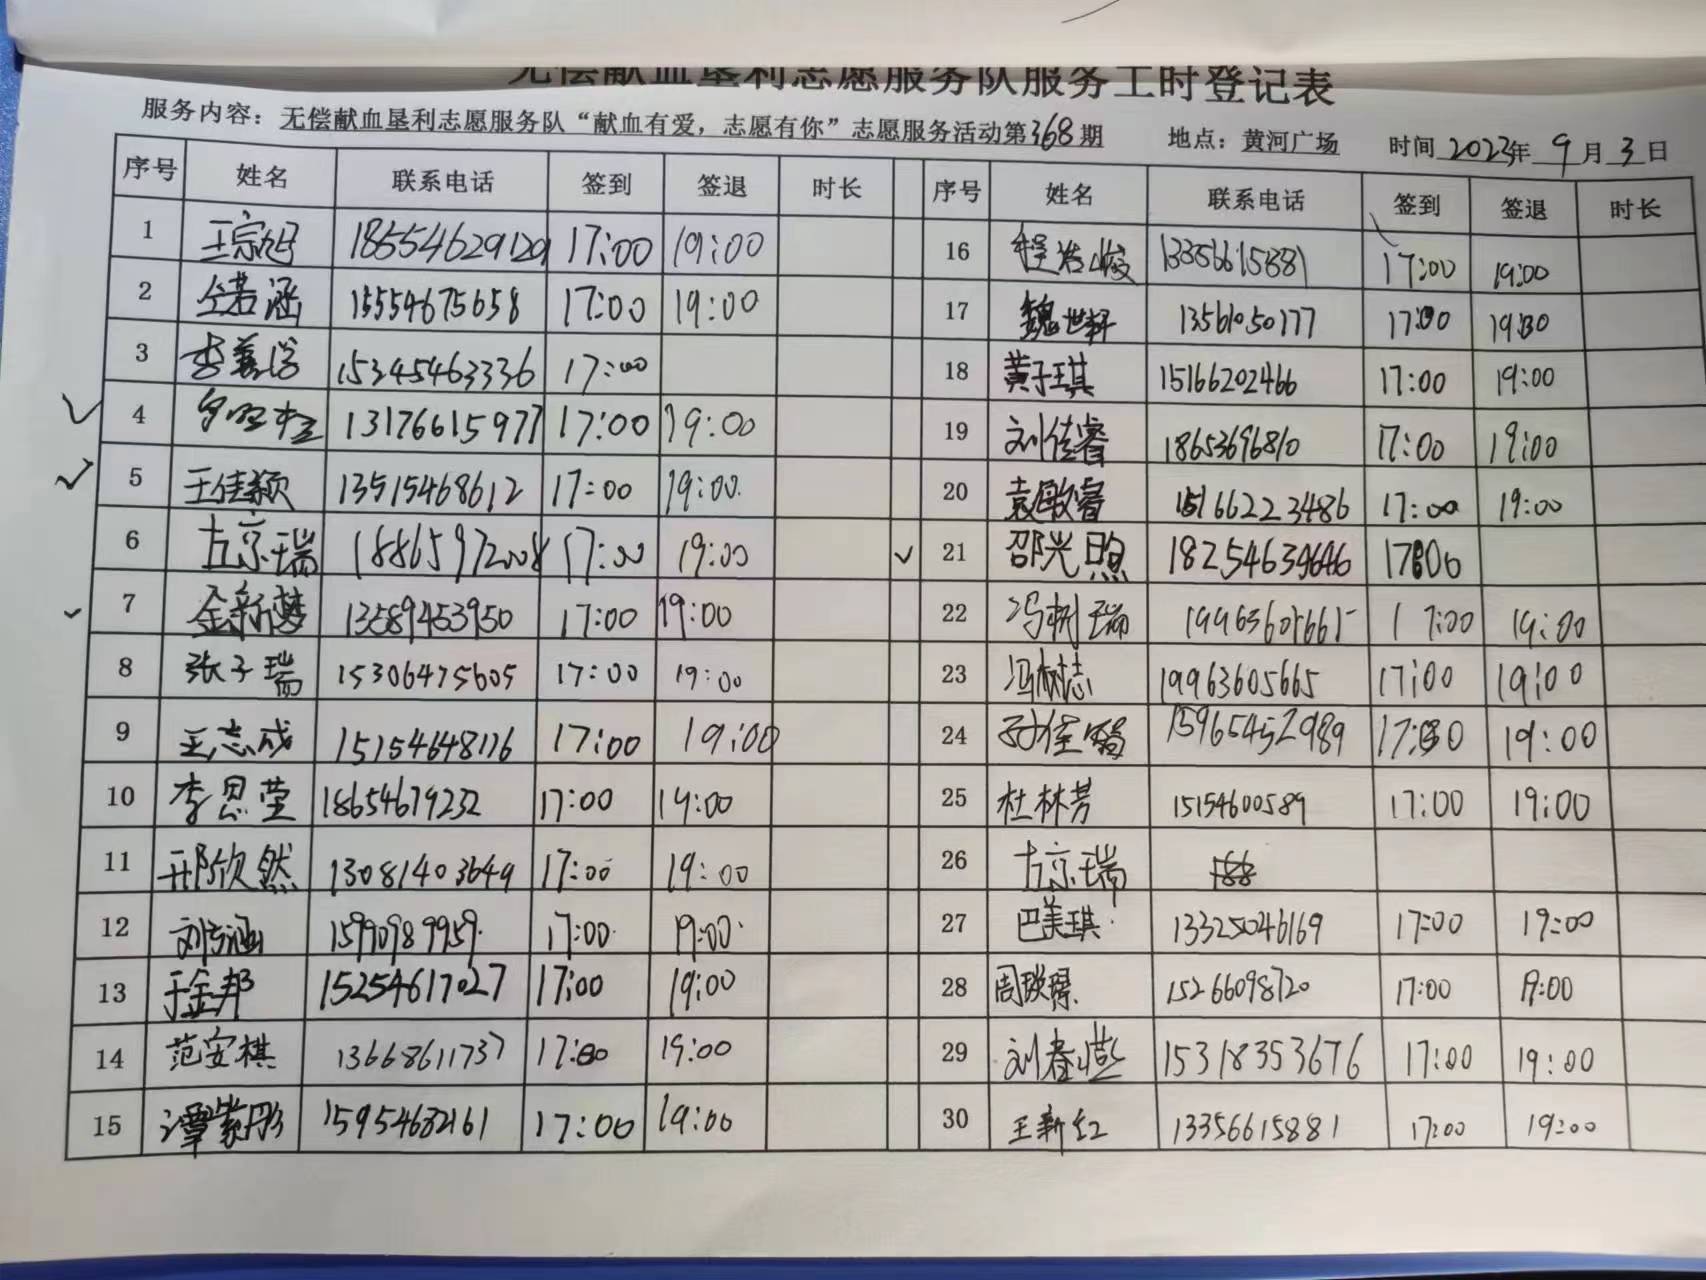 无偿献血垦利志愿服务队服务工时登记表
服务内容：无偿献血垦利志愿服务队“献血有爱，志愿有你”志愿服务活动第368期 地点：黄河广场 时间 2023年 9 月 3 日
序号 姓名 联系电话 签到 签退 时长 序号 姓名 联系电话 签到 签退 时长
1 王宗旭 18554629129 17:00 19:00 16 程浩峻 13356615881 17:00 19:00
2 仝若涵 15554675658 17:00 19:00 17 魏世轩 13561050177 17:00 19:00
3 李善学 15345463336 17:00 18 黄子琪 15166202466 17:00 19:00
✓ 4 13176615977 17:00 19:00 19 刘佳睿 18653696810 17:00 19:00
✓ 5 王佳颖 13515468612 17:00 19:00 20 袁敏睿 15166223486 17:00 19:00
6 古京瑞 18865972008 17:00 19:00 ✓ 21 邵光照 18254639646 17:00
✓ 7 金新梦 13589453950 17:00 19:00 22 冯树瑞 19963605665 17:00 19:00
8 张子瑞 15306475605 17:00 19:00 23 冯树志 19963605665 17:00 19:00
9 王志成 15154648116 17:00 19:00 24 孙佳 15965452989 17:00 19:00
10 李思莹 18654679232 17:00 19:00 25 杜林芳 15154600589 17:00 19:00
11 邢欣然 13081403649 17:00 19:00 26 古京瑞 188
12 刘诗涵 15990989959 17:00 19:00 27 巴美琪 13325046169 17:00 19:00
13 于金邦 15254617027 17:00 19:00 28 周 15266098720 17:00 19:00
14 范安棋 13668611737 17:00 19:00 29 刘春燕 15318353676 17:00 19:00
15 谭紫彤 15954682161 17:00 19:00 30 王新红 13356615881 17:00 19:00